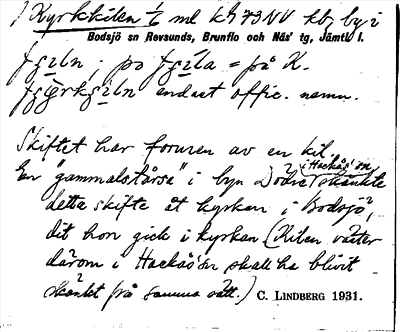 Kyrkkilen 1/6 ml kh 79 NV kb, by i
Bodsjö sn Revsunds, Brunflo och Näs' tg, Jämtl. l.
= på K.
endast offic. namn.
Skiftet har formen av en kil.
i Hackås sn
En "gammalstårsa" i byn Dödre skänkte
detta skifte åt kyrkan i Bodsjö,
dit hon gick i kyrkan (Kilen väster
därom i Hackås sn skall ha blivit
skänkt på samma sätt.) C. LINDBERG 1931.